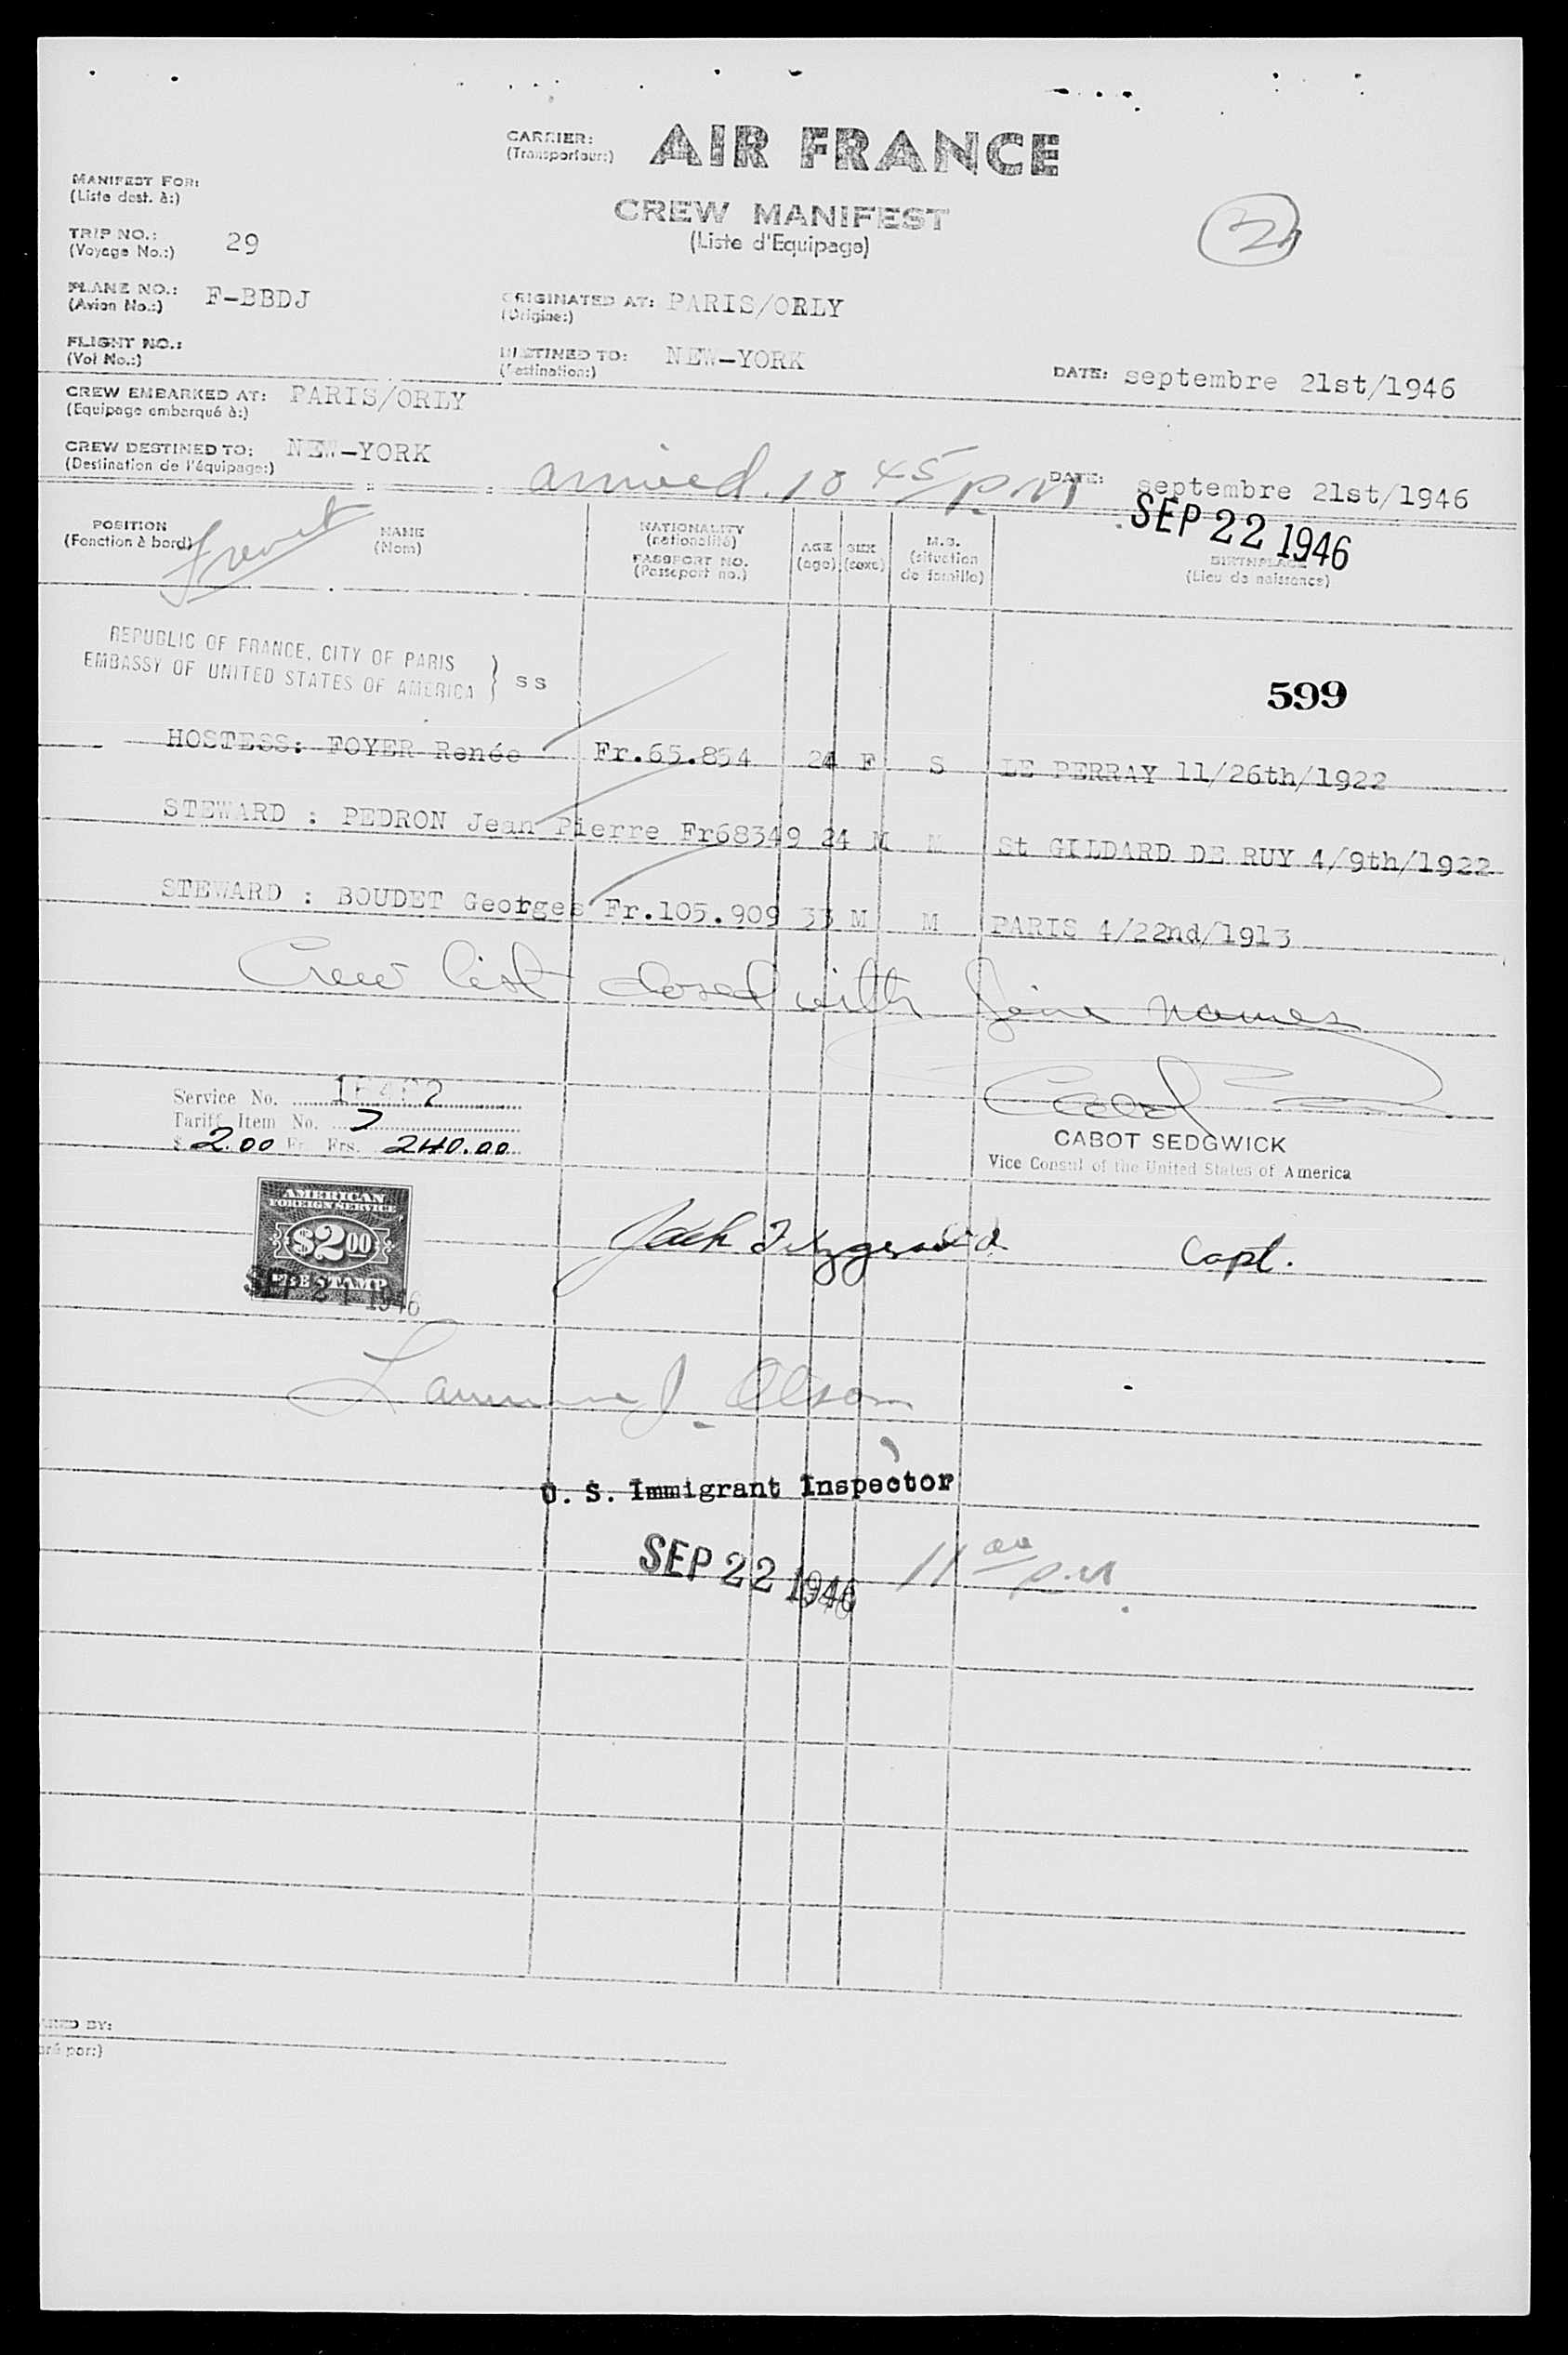 CARRIER: AIR FRANCE
(Transporteur:)
MANIFEST FOR:
(Liste dest. à:)
CREW MANIFEST
(Liste d'Equipage)
TRIP NO.: 29
(Voyage No.:)
PLANE NO.: F-BBDJ
(Avion No.:)
ORIGINATED AT: PARIS/ORLY
(Origine:)
FLIGHT NO.:
(Vol No.:)
DESTINED TO: NEW-YORK
(Destination:)
DATE: septembre 21st/1946
CREW EMBARKED AT: PARIS/ORLY
(Equipage embarqué à:)
CREW DESTINED TO: NEW-YORK
(Destination de l'équipage:)
arrived 10 45/P.M
DATE: septembre 21st/1946
SEP 22 1946
POSITION
(Fonction à bord)
NAME
(Nom)
NATIONALITY
(nationalité)
PASSPORT NO.
(Passeport no.)
AGE
(age)
SEX
(sexe)
M.S.
(situation
de famille)
BIRTHPLACE
(Lieu de naissance)
REPUBLIC OF FRANCE, CITY OF PARIS
EMBASSY OF UNITED STATES OF AMERICA } SS
599
HOSTESS: FOYER Renée Fr.65.854 24 F S LE PERRAY 11/26th/1922
STEWARD : PEDRON Jean Pierre Fr68349 24 M M St GILDARD DE RUY 4/9th/1922
STEWARD : BOUDET Georges Fr.105.909 33 M M PARIS 4/22nd/1913
Crew list closed with names
Service No.
Tariff Item No. 7
$ 2.00 Fr. Frs. 240.00
CABOT SEDGWICK
Vice Consul of the United States of America
AMERICAN
FOREIGN SERVICE
$2 00
FEE STAMP
SEP 21 1946
Jack Fitzgerald Capt.
Lawrence J. Olson
U. S. Immigrant Inspector
SEP 22 1946 11 00 P.M.